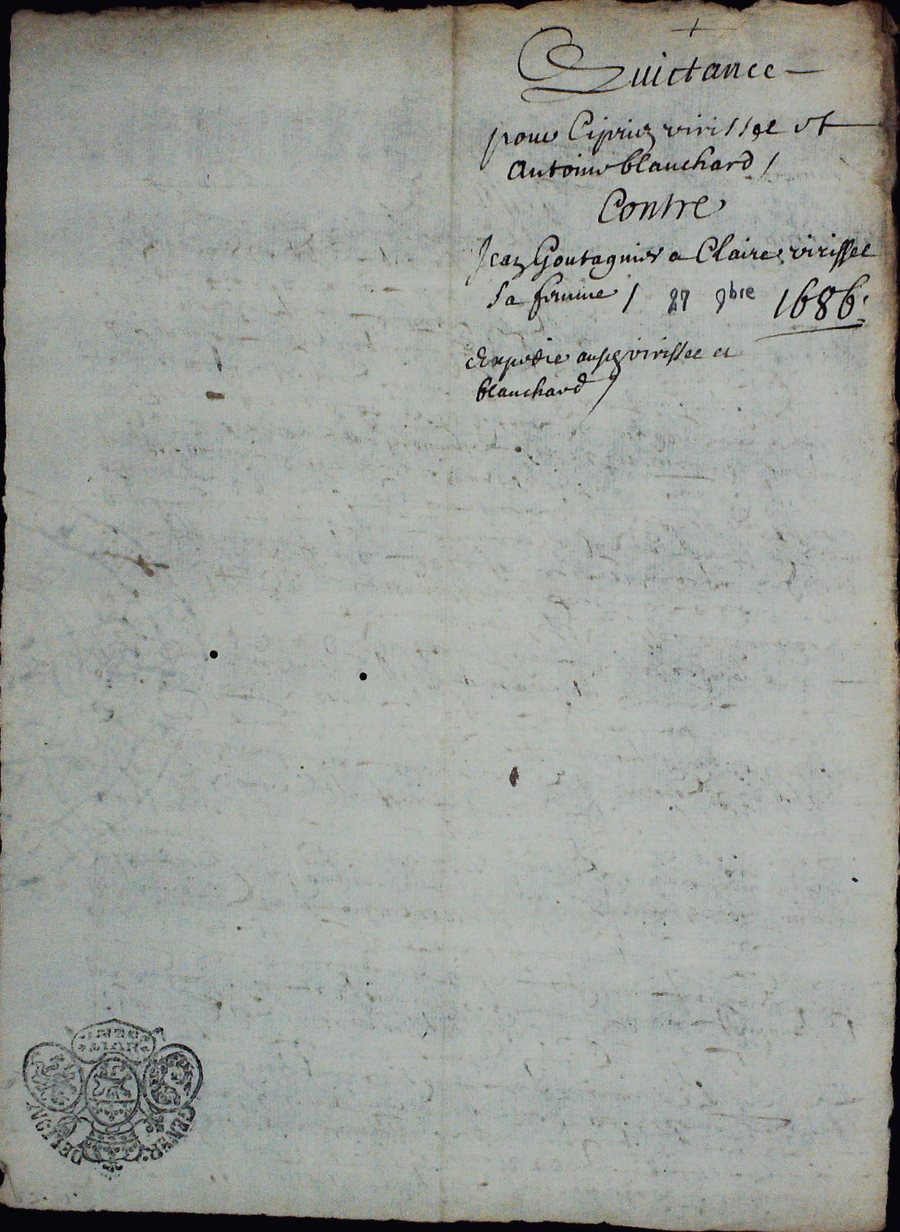 +
Quictance
pour Cipriz virissel et
Antoine blanchard /
Contre
Jean Goutagnier a Claire virissel
Sa femme / 27 9bre 1686.
Expedie ausd virissel et
blanchard
HUIT
DENI
GENER
DE LION